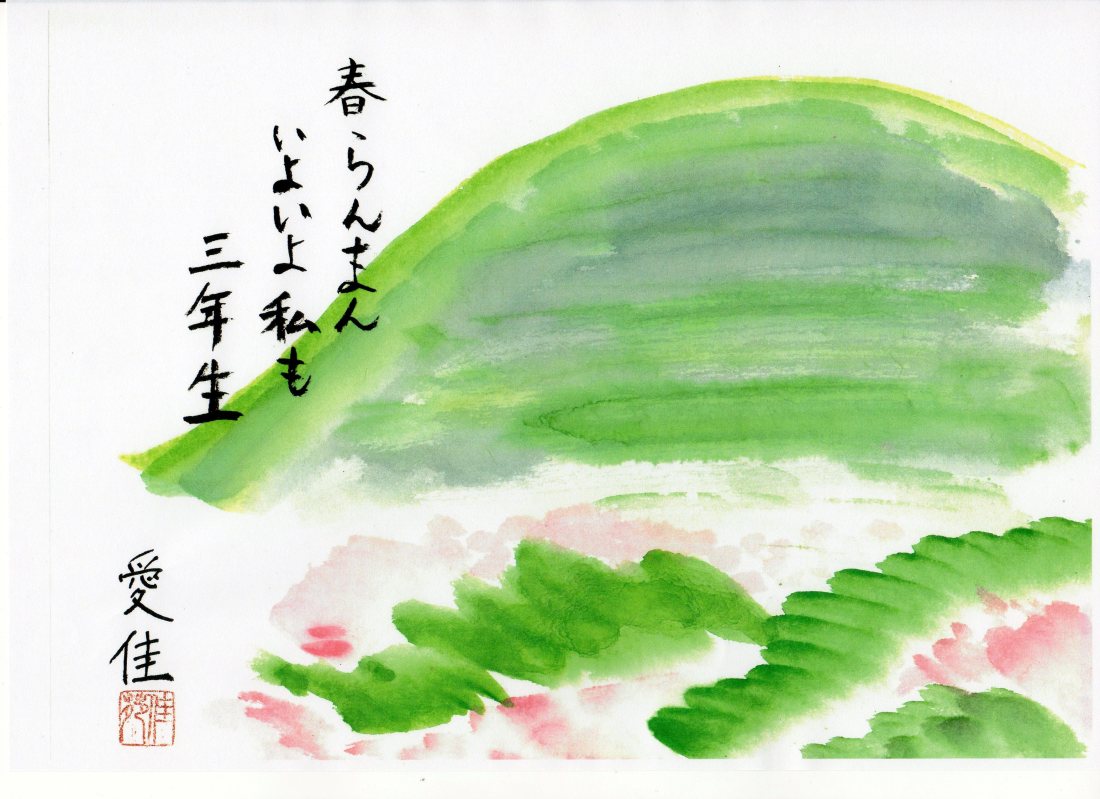 春らんまん
いよいよ私も
三年生
愛佳